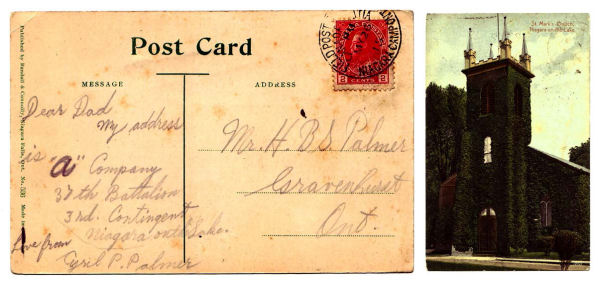 Post Card
MESSAGE
ADDRESS
Dear Dad
My address
is "a" Company
37th Battalion
3rd. Contingent
Niagara on the Lake.
Love from
Cyril P. Palmer
Mr. H B S Palmer
Gravenhurst
Ont.
2 CENTS 2
FIELD POST
NIAGARA CAMP ONT
Published by Rumsell & Connolly, Niagara Falls, Ont.
St. Mark's Church,
Niagara-on-the-Lake.